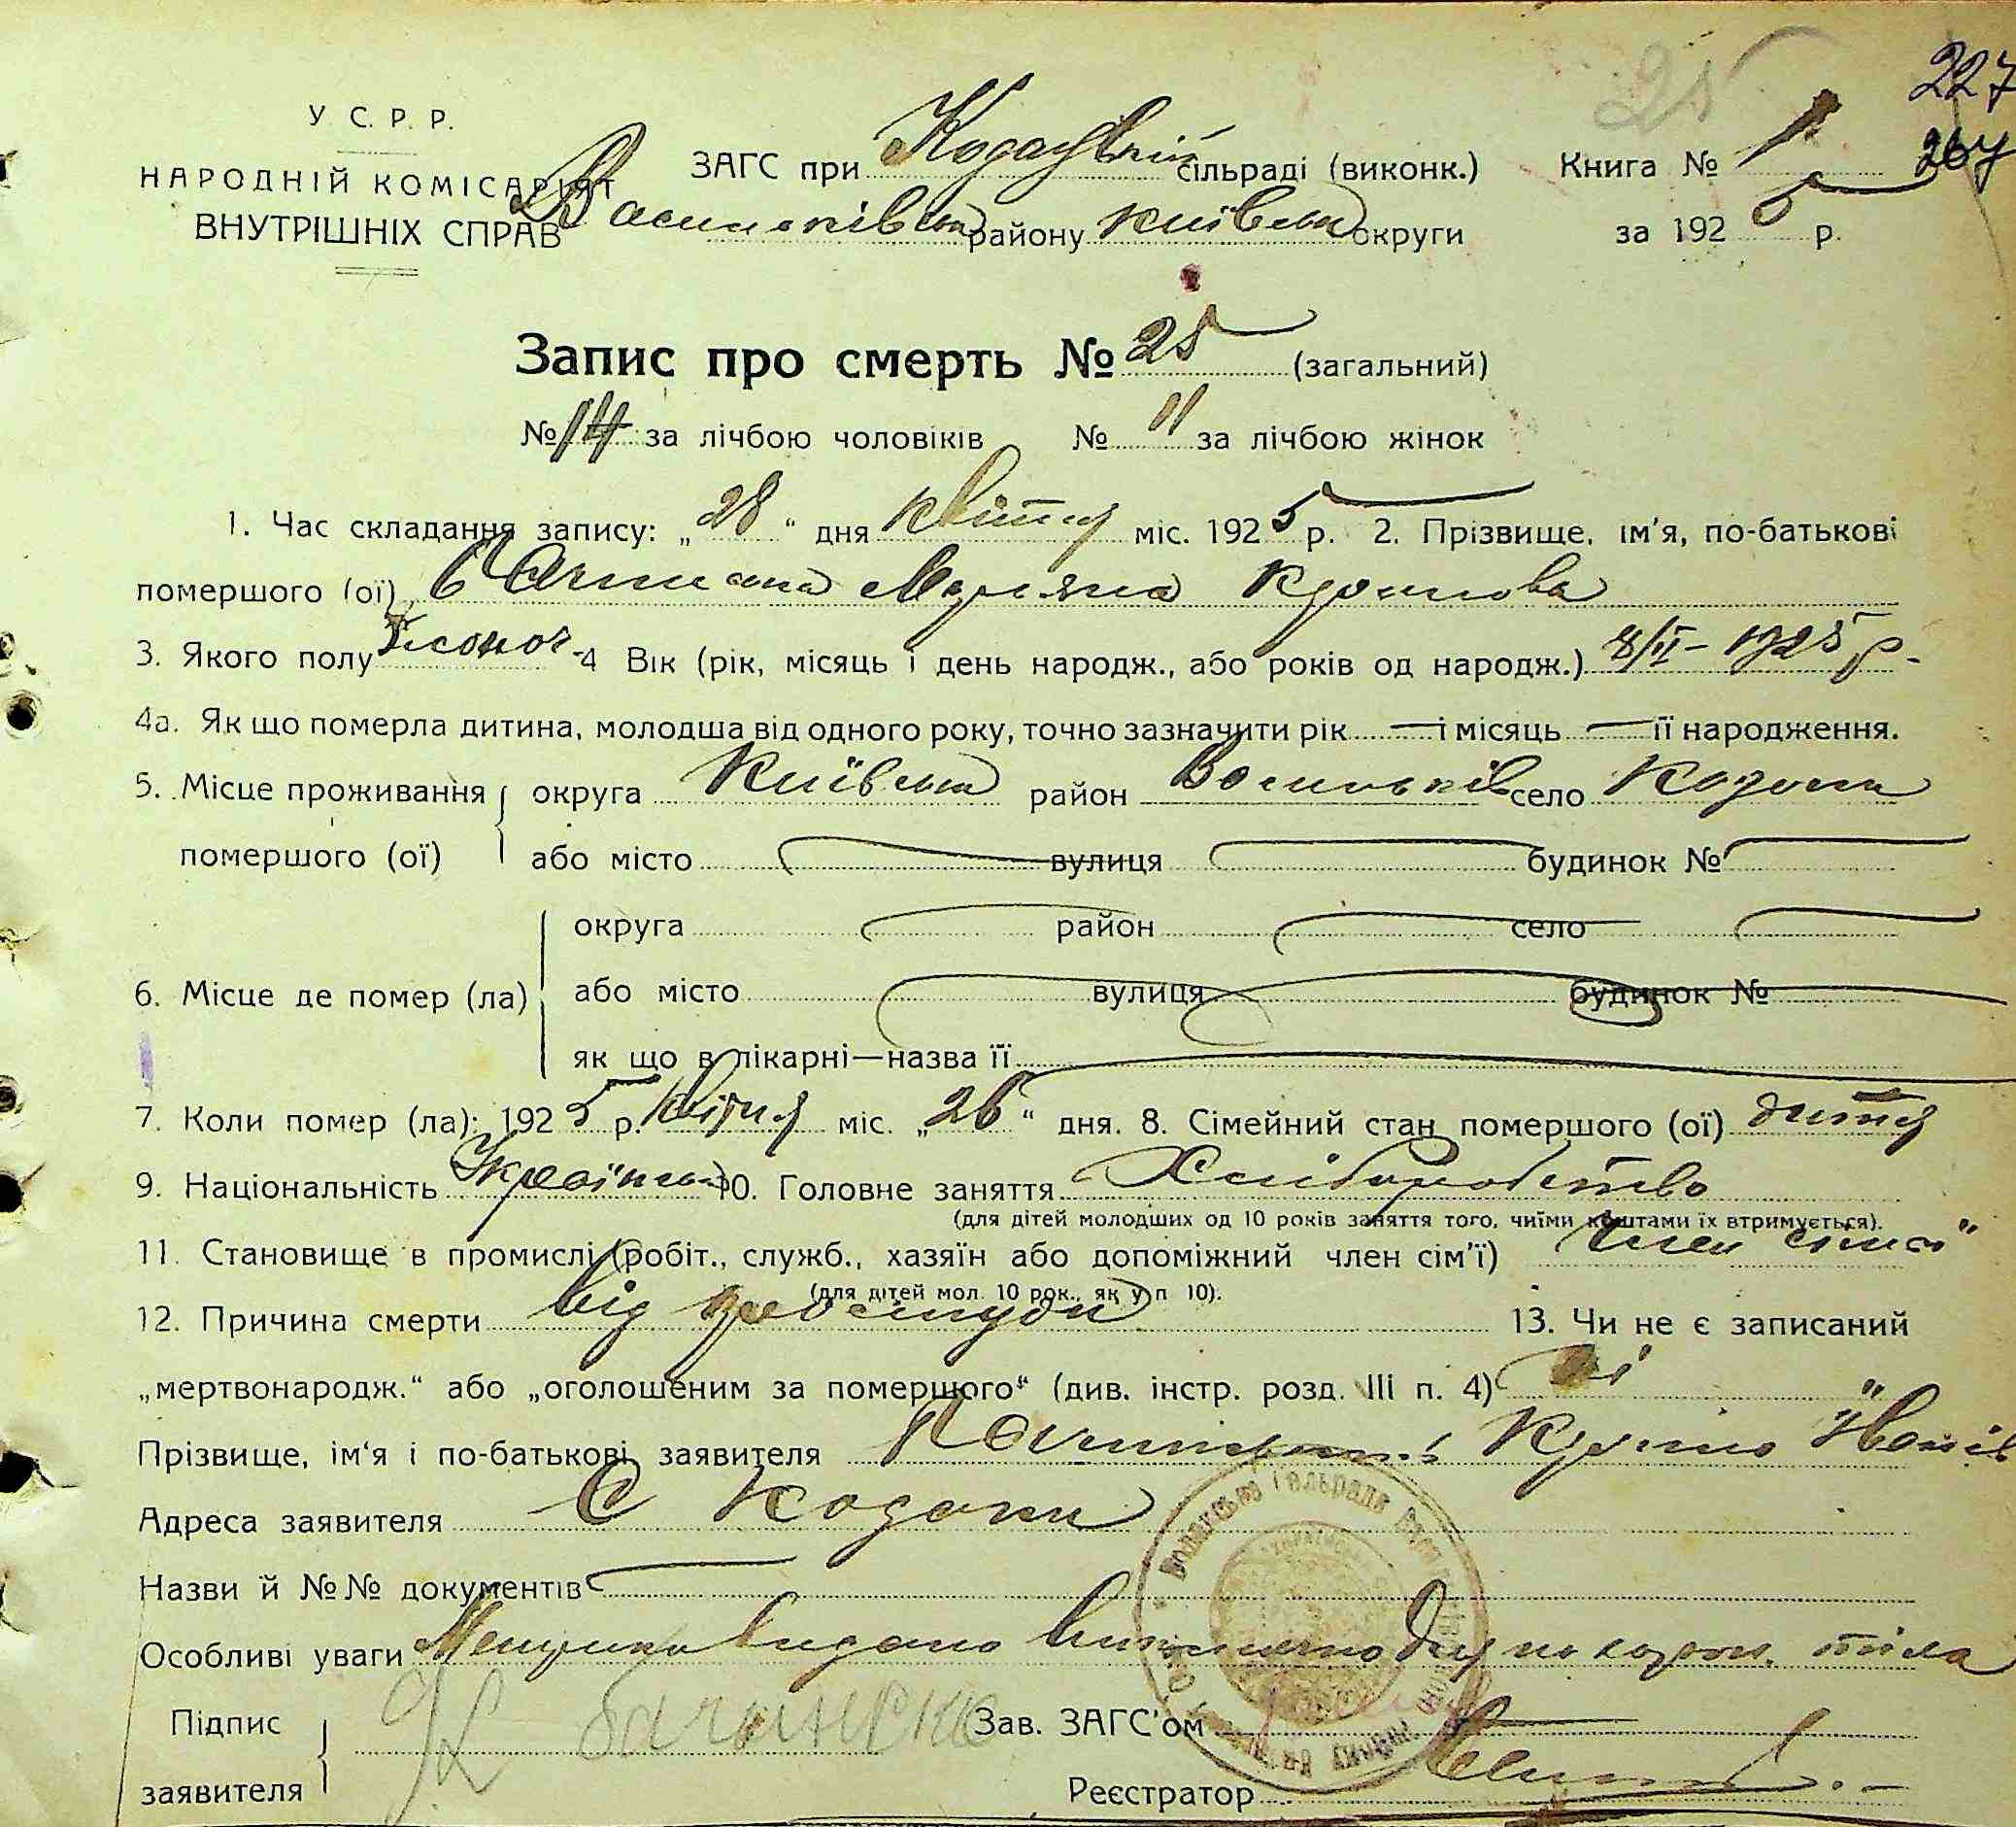 227
25
264
У С. Р. Р.
НАРОДНІЙ КОМІСАРІЯТ
ВНУТРІШНІХ СПРАВ
ЗАГС при сільраді (виконк.) Книга № 1
району Київськ округи за 1925 р.
Запис про смерть № 25 (загальний)
№ 14 за лічбою чоловіків № 11 за лічбою жінок
1. Час складання запису: „28“ дня квітня міс. 1925 р. 2. Прізвище, ім'я, по-батькові
помершого (ої)
3. Якого полу жоноч 4 Вік (рік, місяць і день народж., або років од народж.) 1925 р.
4а. Як що померла дитина, молодша від одного року, точно зазначити рік — і місяць — її народження.
5. Місце проживання округа Київська район Васильків село Кодаки
помершого (ої) або місто вулиця будинок №
округа район село
6. Місце де помер (ла) або місто вулиця будинок №
як що в лікарні—назва її
7. Коли помер (ла): 1925 р. квітня міс. „26“ дня. 8. Сімейний стан помершого (ої) дитя
9. Національність Українська 10. Головне заняття Хліборобство
(для дітей молодших од 10 років заняття того, чиїми коштами їх втримується).
11. Становище в промислі (робіт., служб., хазяїн або допоміжний член сім'ї) член сім'ї
(для дітей мол. 10 рок., як у п 10).
12. Причина смерти від простуди 13. Чи не є записаний
„мертвонародж.“ або „оголошеним за помершого“ (див. інстр. розд. III п. 4) ні
Прізвище, ім'я і по-батькові заявителя Іванів
Адреса заявителя С Кодаки
Назви й №№ документів
Особливі уваги видано тіла
Підпис
заявителя
Зав. ЗАГС'ом
Реєстратор